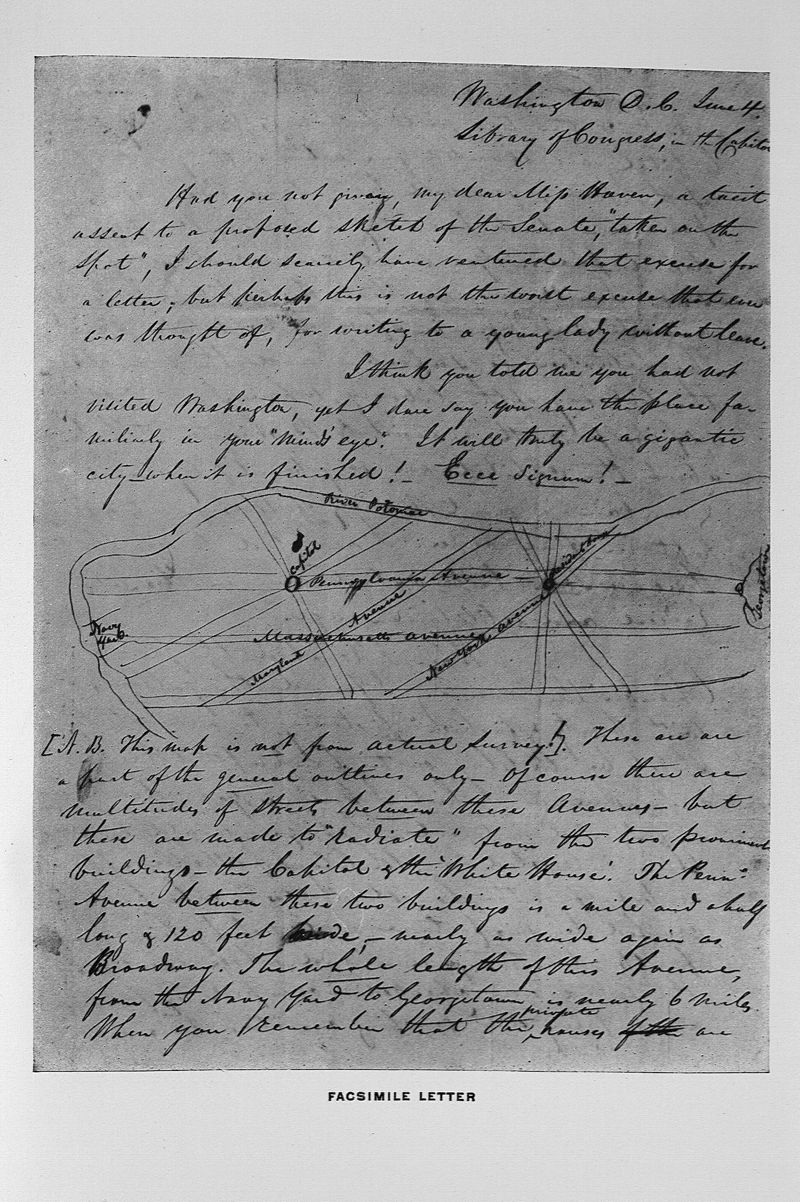 Washington D.C. June 4.
Library of Congress, in the Capitol
Had you not given, my dear Miss Haven, a tacit
assent to a proposed sketch of the Senate, "taken on the
spot", I should scarcely have ventured that excuse for
a letter; but perhaps this is not the worst excuse that ever
was thought of, for writing to a young lady without leave.
I think you told me you had not
visited Washington, yet I dare say you have the place fa-
miliarly in your "mind's eye". It will truly be a gigantic
city - when it is finished! - Ecce Signum! -
River Potomac
Capitol
Pennsylvania Avenue
Presidts House
Georgetown
Navy
Yard
Massachusetts avenue
Maryland Avenue
New York avenue
[N.B. This map is not from actual survey!]. These are are
a part of the general outlines only - Of course there are
multitudes of streets between these Avenues - but
these are made to "radiate" from the two prominent
buildings - the Capitol & the 'White House'. The Penna
Avenue between these two buildings is a mile and a half
long & 120 feet wide, - nearly as wide again as
Broadway. The whole length of this Avenue,
from the Navy Yard to Georgetown is nearly 6 miles.
When you remember that the private houses of the are
FACSIMILE LETTER